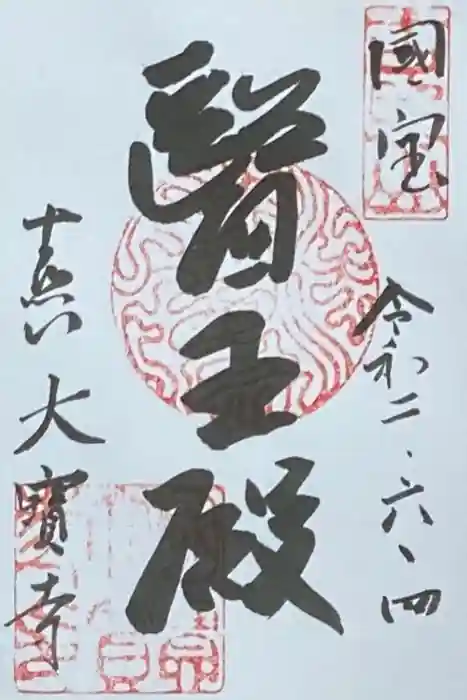 國宝
令和二、六、四
醫王殿
大寳寺